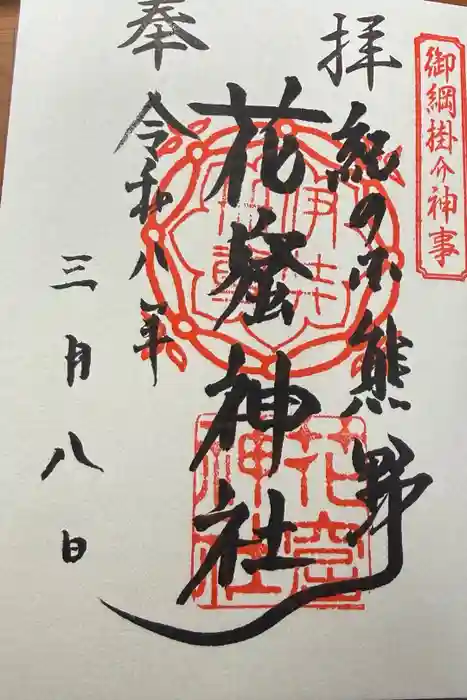 御綱掛介神事
奉拝
紀の国熊野
花窟神社
令和八年
三月八日
花窟
神社